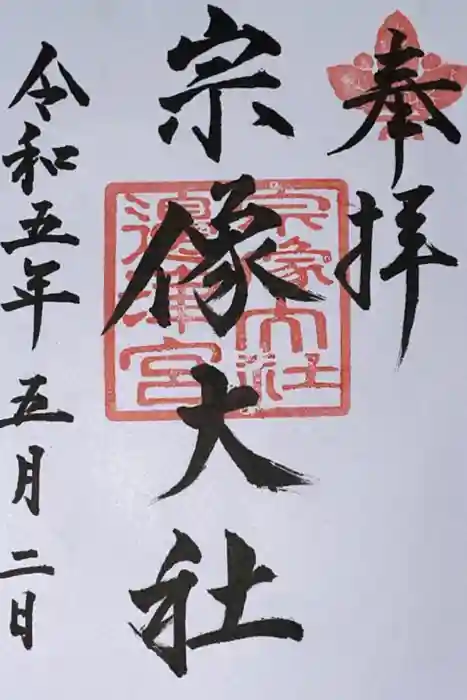 奉拝
宗像大社
宗像大社
邊津宮
令和五年五月二日